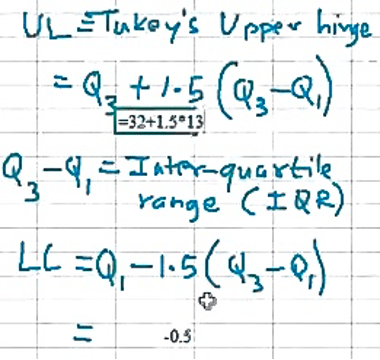 UL = Tukey's Upper hinge
= Q₃ + 1.5 (Q₃ - Q₁)
=32+1.5*13
Q₃ - Q₁ = Inter-quartile
range (IQR)
LL = Q₁ - 1.5 (Q₃ - Q₁)
= -0.5